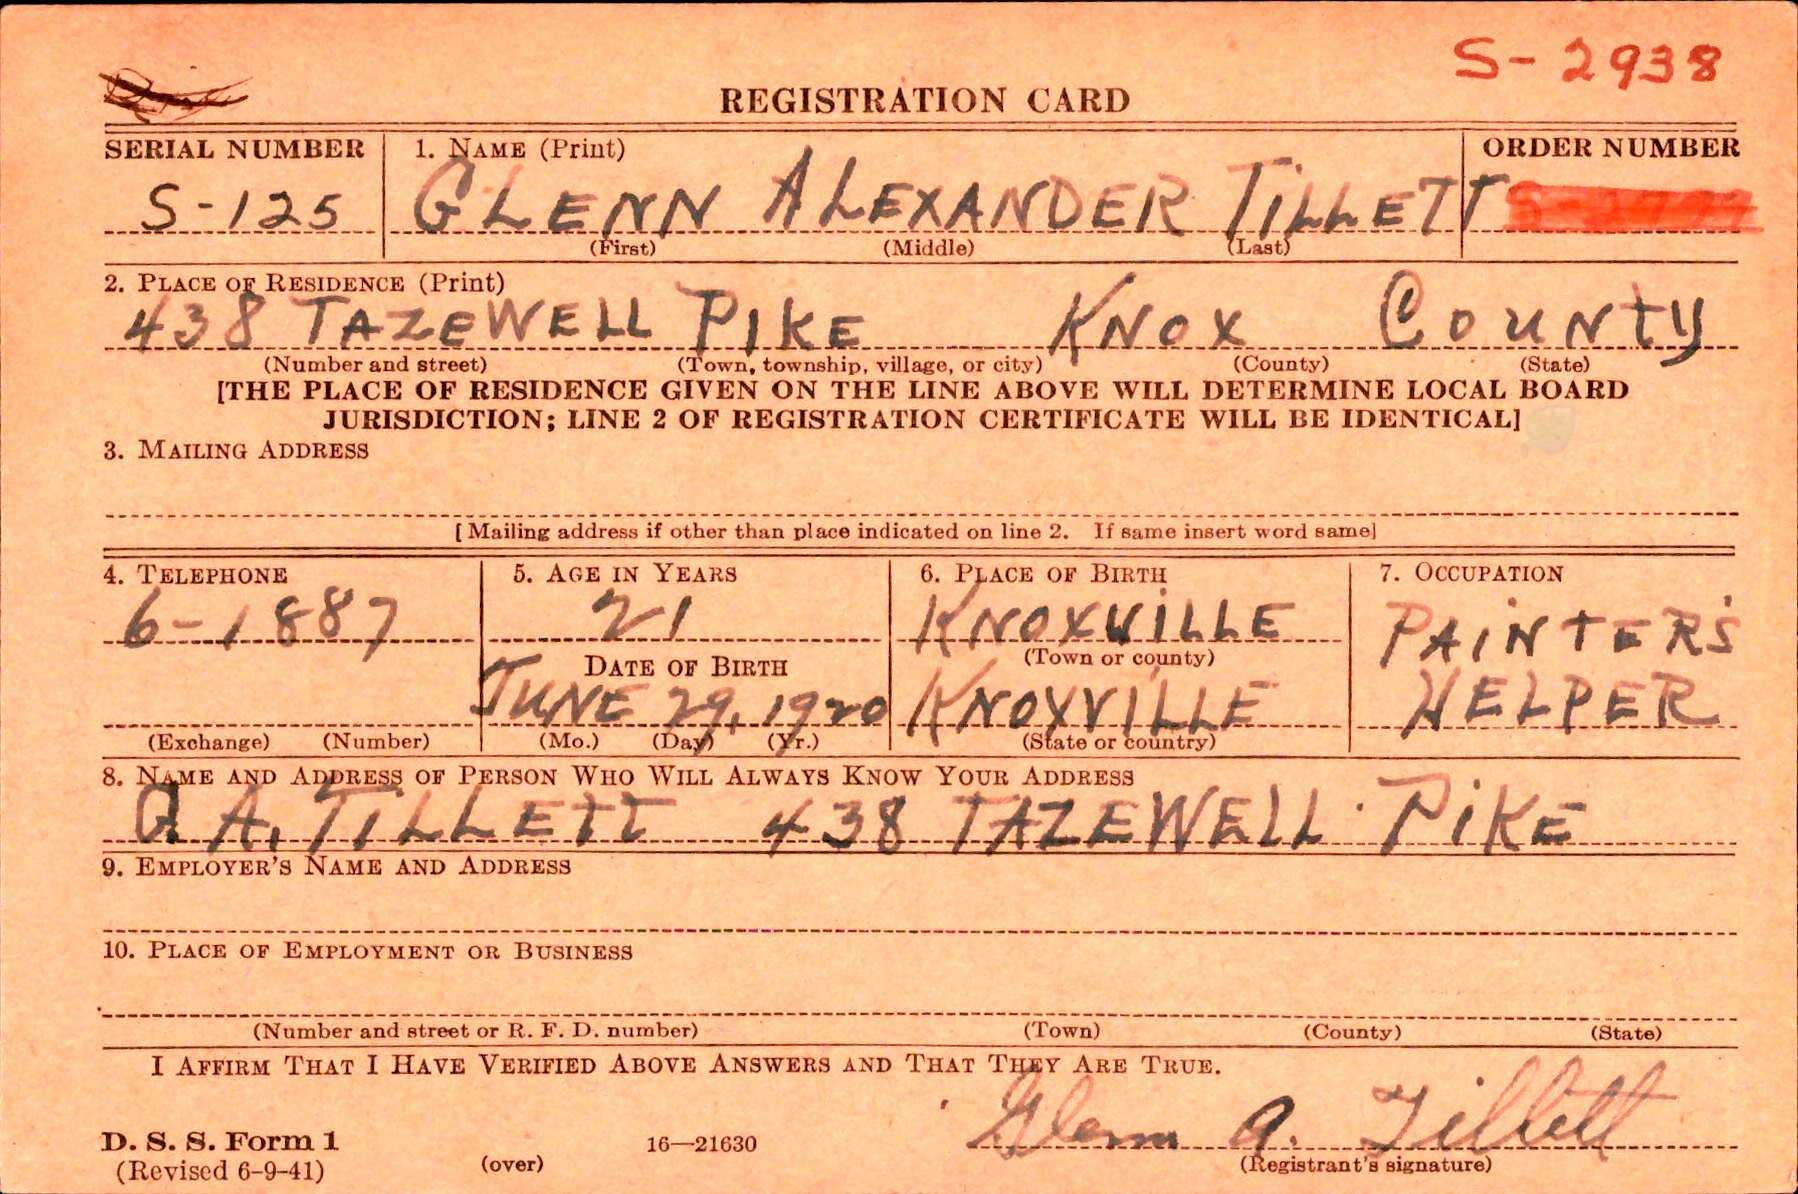 S- 2938
REGISTRATION CARD
SERIAL NUMBER 1. NAME (Print) ORDER NUMBER
S-125 GLENN ALEXANDER TILLETT
(First) (Middle) (Last)
2. PLACE OF RESIDENCE (Print)
438 TAZEWELL PIKE KNOX COUNTY
(Number and street) (Town, township, village, or city) (County) (State)
[THE PLACE OF RESIDENCE GIVEN ON THE LINE ABOVE WILL DETERMINE LOCAL BOARD
JURISDICTION; LINE 2 OF REGISTRATION CERTIFICATE WILL BE IDENTICAL]
3. MAILING ADDRESS
[Mailing address if other than place indicated on line 2. If same insert word same]
4. TELEPHONE 5. AGE IN YEARS 6. PLACE OF BIRTH 7. OCCUPATION
6-1887 21 KNOXVILLE PAINTER'S
DATE OF BIRTH (Town or county)
JUNE 29, 1920 KNOXVILLE HELPER
(Exchange) (Number) (Mo.) (Day) (Yr.) (State or country)
8. NAME AND ADDRESS OF PERSON WHO WILL ALWAYS KNOW YOUR ADDRESS
A. TILLETT 438 TAZEWELL PIKE
9. EMPLOYER'S NAME AND ADDRESS
10. PLACE OF EMPLOYMENT OR BUSINESS
(Number and street or R. F. D. number) (Town) (County) (State)
I AFFIRM THAT I HAVE VERIFIED ABOVE ANSWERS AND THAT THEY ARE TRUE.
Glenn A. Tillett
D. S. S. Form 1 16—21630
(Revised 6-9-41) (over) (Registrant's signature)